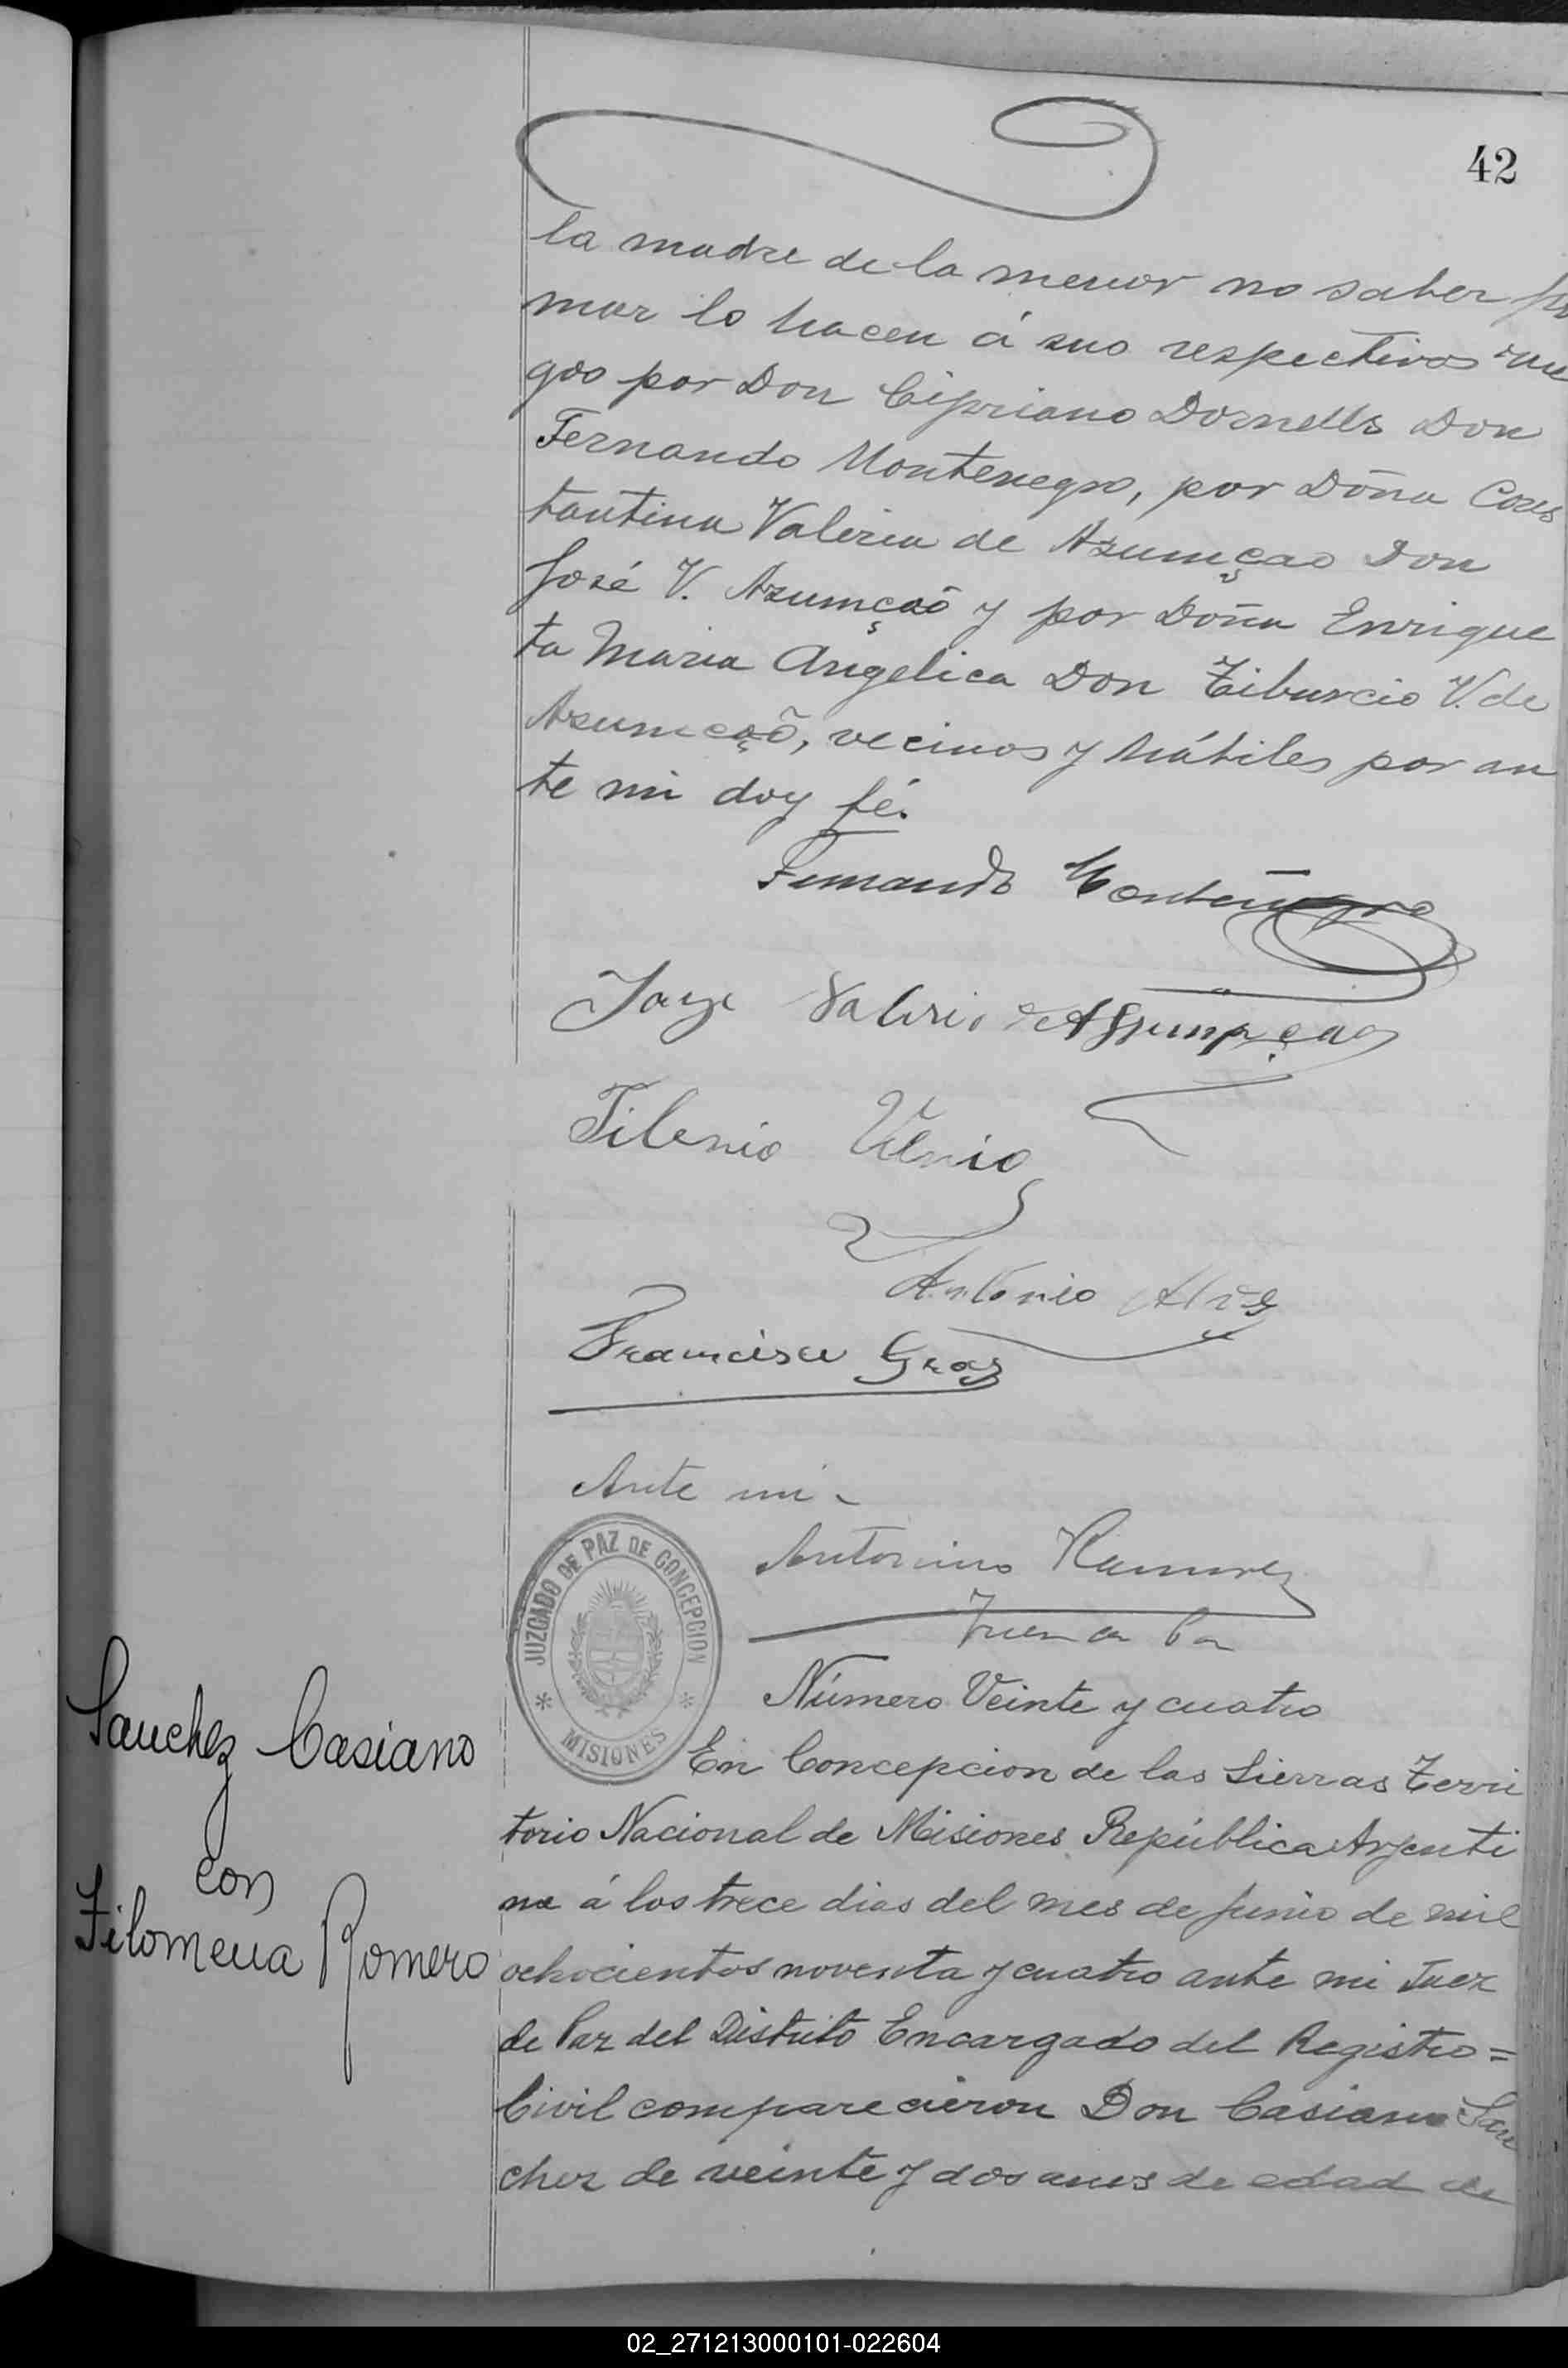 42
la madre de la menor no saber fir
mar lo hacen á sus respectivos rue
gos por Don Cipriano Dornells Don
Fernando Montenegro, por Doña Cons
tantina Valeria de Asumçao Don
José V. Asumçaõ y por Doña Enrique
ta Maria Angelica Don Tiburcio V. de
Asumçaõ, vecinos y hábiles por an
te mi doy fé.
Fernando Montenegro
Valerio de Assumpçao
Antonio
Francisco
Ante mi
JUZGADO DE PAZ DE CONCEPCION
* MISIONES *
Antonino Ramirez
Juez de Paz
Número Veinte y cuatro
Sanchez Casiano
con
Filomena Romero
En Concepcion de las Sierras Terri
torio Nacional de Misiones República Argenti
na á los trece dias del mes de Junio de mil
ochocientos noventa y cuatro ante mi Juez
de Paz del Distrito Encargado del Registro=
Civil comparecieron Don Casiano San
chez de veinte y dos anos de edad de
02_271213000101-022604